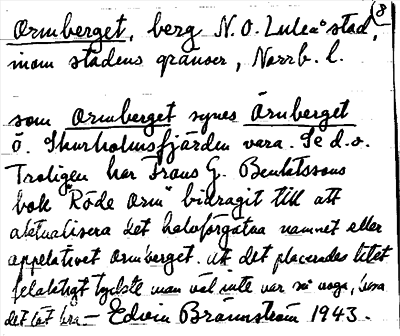 8
Ormberget, berg N.O. Luleå stad,
inom stadens gränser, Norrb. l.
som Ormberget synes Örnberget
ö. Skurholmsfjärden vara. Se d.o.
Troligen har Frans G. Bengtssons
bok "Röde Orm" bidragit till att
aktualisera det halvförgätna namnet eller
appelativet Ormberget. Att det placerades litet
felaktigt tyckte man väl inte var så noga, bara
det lät bra. — Edvin Brännström 1943.